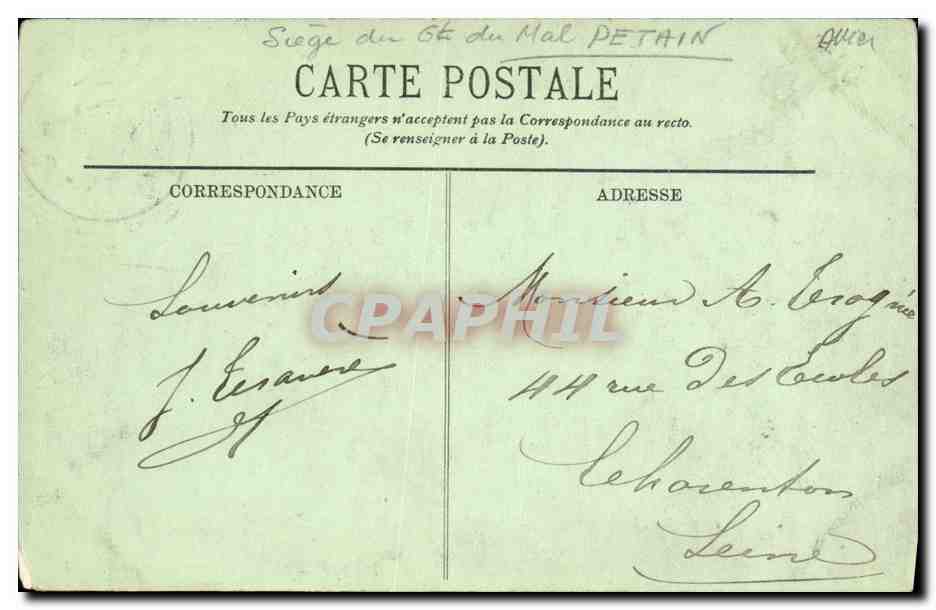 Siège du Gt du Mal PETAIN
CARTE POSTALE
Tous les Pays étrangers n'acceptent pas la Correspondance au recto.
(Se renseigner à la Poste).
CORRESPONDANCE
ADRESSE
Souvenirs
J.
Monsieur A.
44 rue Des Ecoles
Charenton
Seine
CPAPHIL